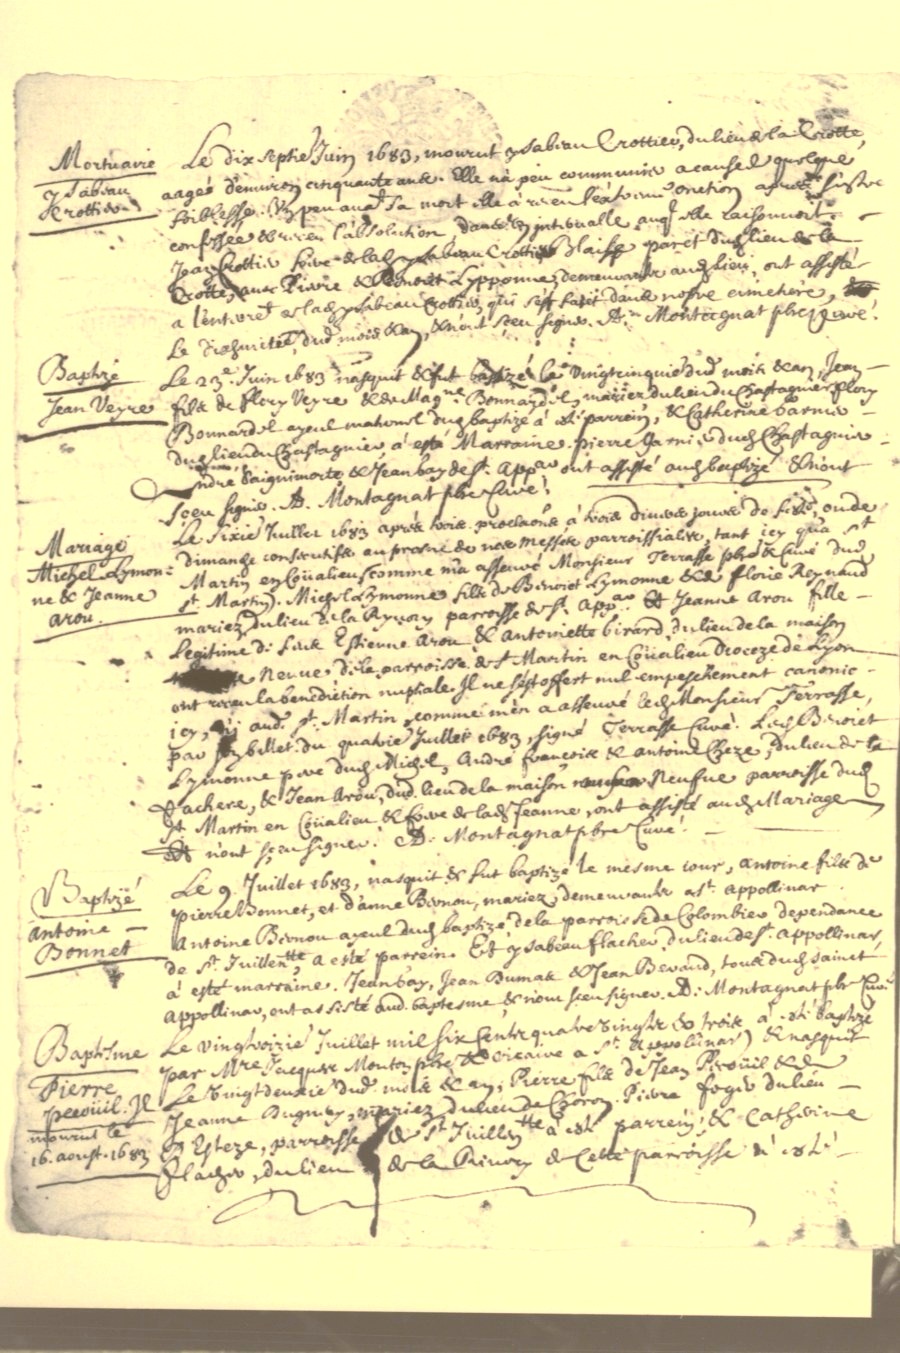 Mortuaire
ysabeau
Crottier
Le dix septie Juin 1683, mourut ysabeau Crottier, du lieu de la Crotte,
aagée d'environ cinquante ans. Elle n'a peu communier a cause de quelque
foiblesse. Un peu avāt sa mort elle a receu l'extreme onction après s'estre
confessée & receu l'absolution dans un intervalle auql elle raisonnoit.
Jean Crottier de lad ysabeau Crottier Blaise paret dudt lieu de la
Crotte, avec Pierre & Benoist Lymonne, demeurants audt lieu, ont assisté
a l'enterremt de lad ysabeau Crottier, qui s'est fait dans nostre cimetiere,
Le dixhuitie, dud mois & an, & n'ont sceu signer. A. Montagnat pbre Curé.
Baptizé
Jean Veyre
Le 23e. Juin 1683 nasquit & fut baptizé le vingtcinquie dud mois & an, Jean
fils de Flory Veyre & de Magne Bonnardel, mariez du lieu du Chastagnier. Flory
Bonnardel ayeul maternel dudt baptizé a esté parrein, & Catherine Garnier
dudt lieu du Chastagnier, a esté Marraine. pierre Garnier dudt Chastagnier
André d'aiguimorte & Jean bay de St. Appar ont assisté audt baptizé & n'ont
sceu signer. A. Montagnat pbre Curé.
Mariage
Michel Lymon=
ne & Jeanne
arou.
Le sixie Juillet 1683 après trois proclaõns à trois divers jours de feste, ou de
dimanche consecutifs au prosne de nos messes parroissiales, tant icy qu'a St
Martin en Coüalieu (comme m'a asseuré Monsieur Terrasse pbre & Curé dud
St Martin). Michel Lymonne fils de Benoist Lymonne & de Florie Reynaud
mariez, du lieu de la Rivory parroisse de St. Appar. Et Jeanne Arou fille
legitime de feus Estienne Arou & Antoinette Girard, du lieu de la maison
Neuve de la parroisse de St Martin en Coüalieu Diocèze de Lyon
ont receu la benediction nuptiale. Il ne s'est offert nul empeschement canonic
icy, ny aud. St. Martin, comme m'en a asseuré led Monsieur Terrasse,
par son billet du quatrie Juillet 1683, signé Terrasse Curé. Led Benoist
Lymonne pere dudt Michel, André françois & antoine Cheze, du lieu de la
Vachere, & Jean Arou, dud. lieu de la maison Neufve parroisse dudt
St Martin en Coüalieu & frere de ladt Jeanne, ont assisté audt Mariage
Et n'ont sceu signer. A. Montagnat pbre Curé.
Baptizé
antoine
Bonnet
Le 9. Juillet 1683, nasquit & fut baptizé le mesme iour, antoine fils de
pierre Bonnet, et d'anne Bernou, mariez, demeurants a St. appollinar.
Antoine Bernou ayeul dudt baptizé de la parroisse de Colombier dependance
de St. Juillentte a esté parrein. Et ysabeau flacher, du lieu de St. appollinar,
à esté marraine. Jean bay, Jean Dumas & Jean Beraud, tous dudt saint
appollinar, ont assisté aud. baptesme & n'ont sceu signer. A. Montagnat pbr Curé
Baptesme
Pierre
peroüil. Il
mourut le
16. aoust. 1683
Le vingtroizie Juillet mil six Cents quatre vingts & trois a esté baptizé
par Mre Jacques Mouton pbre & vicaire a St Appolinar) & nasquit
Le vingtdeuxie dud mois & an, Pierre fils de Jean Peroüil & de
Jeanne Dugnay, mariez, du lieu de Choron. Pierre fogier du lieu
d'Esteze, parroisse de St Juillentte à esté parrein, & Catherine
flacher, du lieu de la Rivory de Cette parroisse à esté